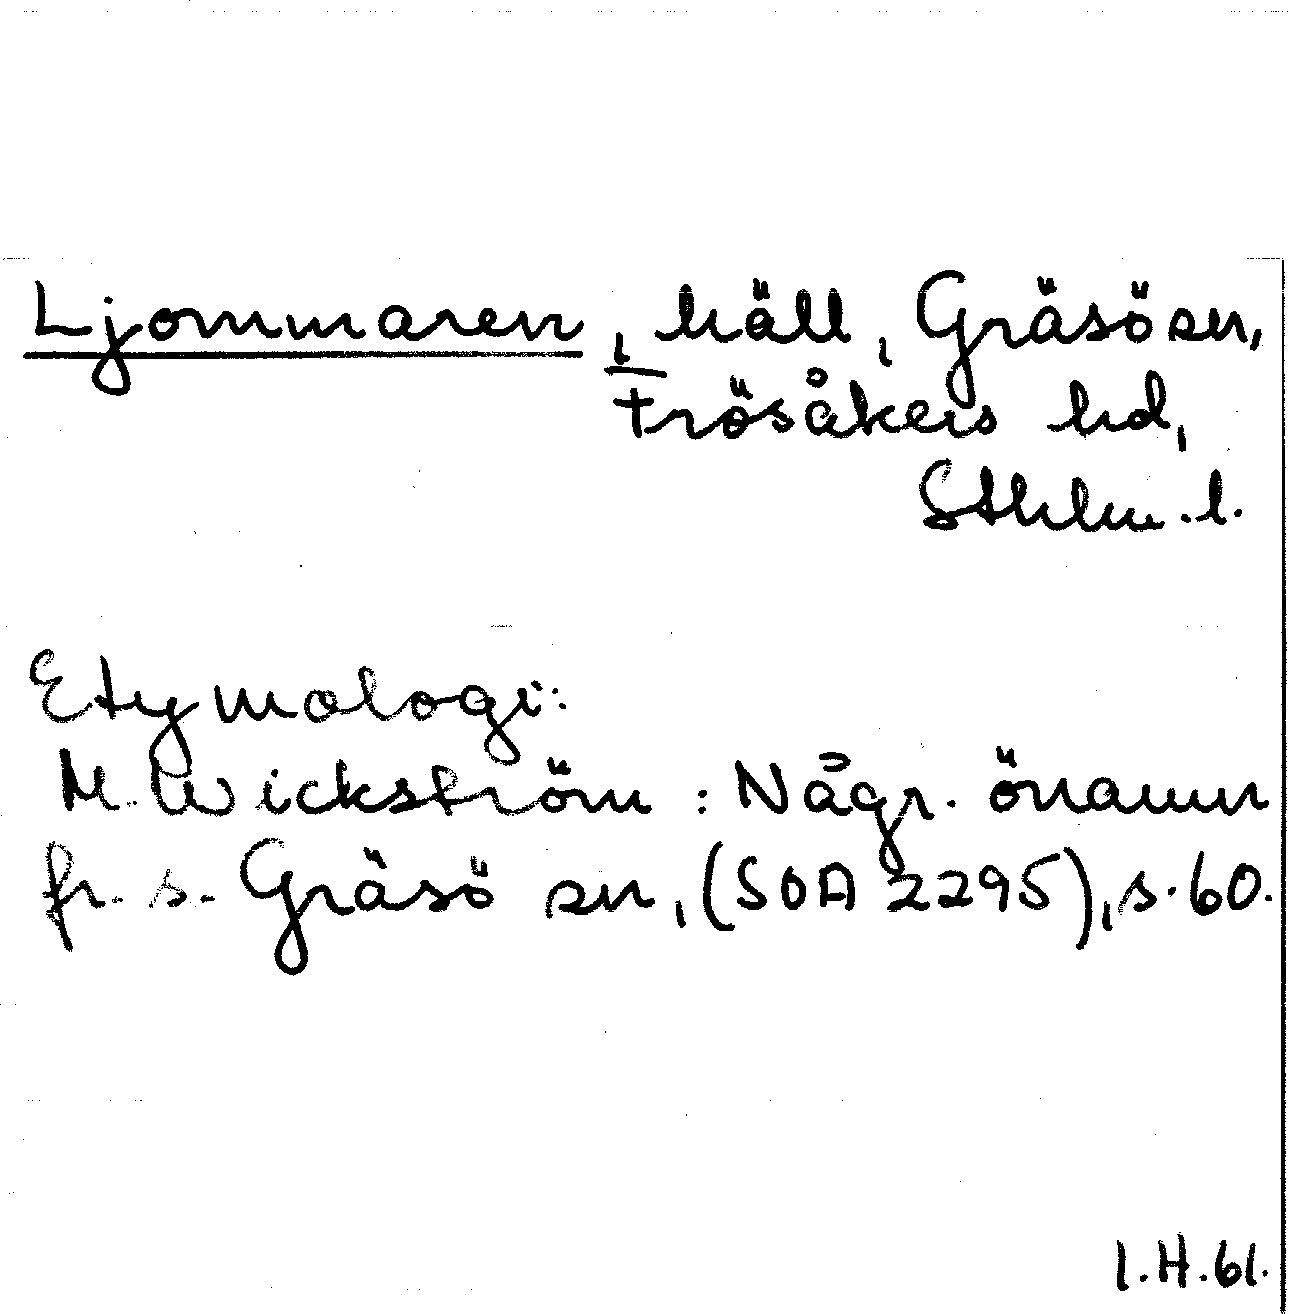 Ljommaren, häll, Gräsö sn,
Frösåkers hd,
Sthlm. l.
Etymologi:
M. Wickström: Någr. önamn
fr. s. Gräsö sn, (SOA 2295), s. 60.
I.H.61.